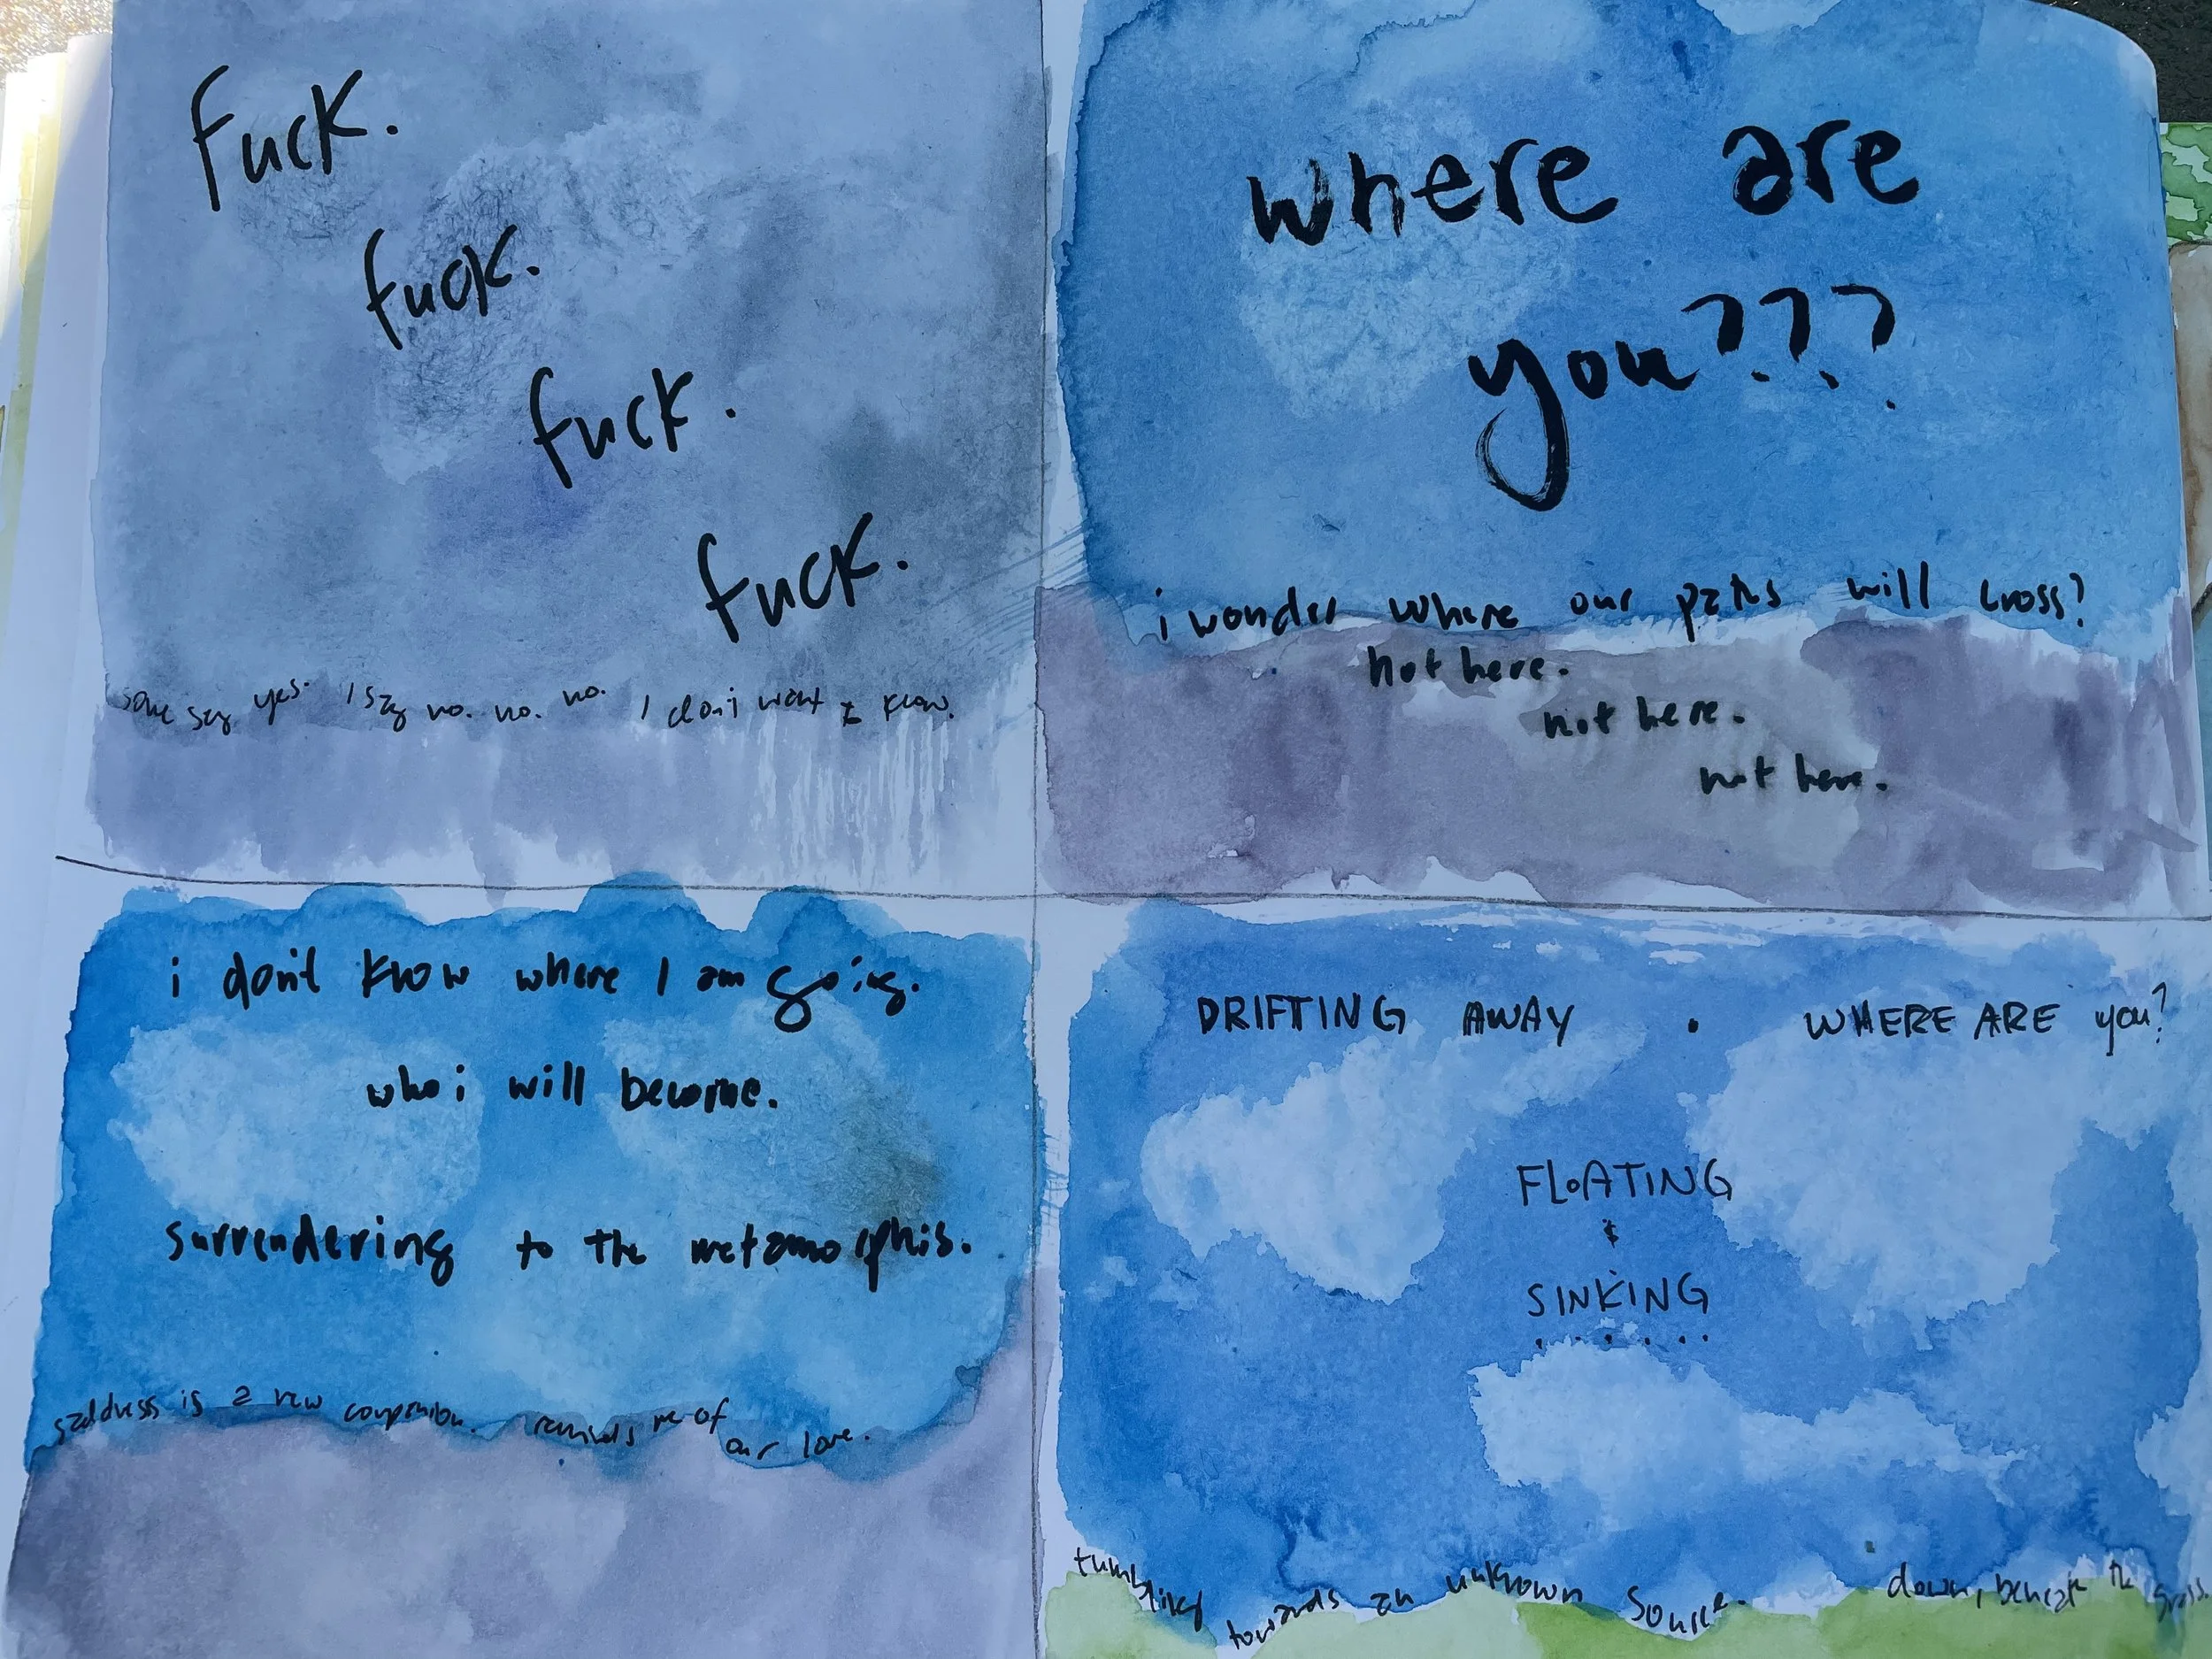 Fuck.
fuck.
fuck.
fuck.
some say yes. I say no. no. no. I don't want to know.
where are
you???
i wonder where our paths will cross?
not here.
not here.
not here.
i don't know where I am going.
who i will become.
surrendering to the metamorphis.
saddness is a new companion. reminds me of
our love.
DRIFTING AWAY . WHERE ARE you?
FLOATING
&
SINKING
.......
tumbling towards an unknown source. down, beneath the grass.